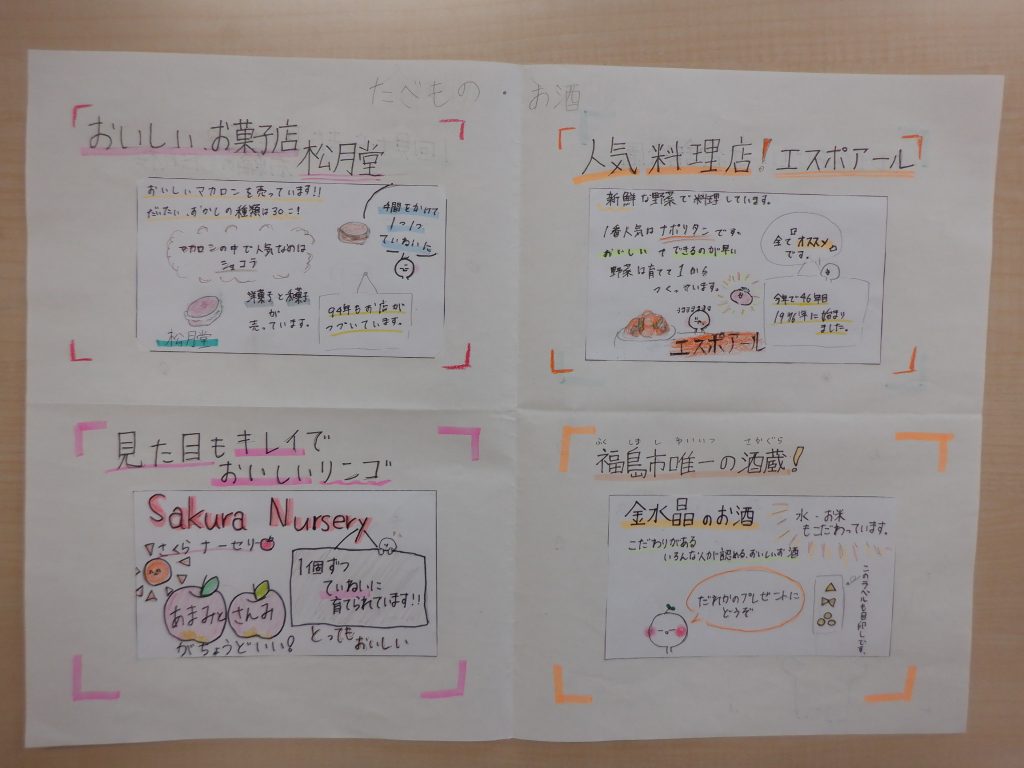 たべもの・お酒
おいしいお菓子店
松月堂
おいしいマカロンを売っています!!
だいたい、おかしの種類は30こ!
マカロンの中で人気なのは
ショコラ
4日間をかけて
1つ1つ
ていねいに
洋菓子と和菓子
が
売っています。
94年もお店が
つづいています。
松月堂
人気料理店!エスポアール
新鮮な野菜で料理しています。
1番人気はナポリタンです。
おいしいってできるのが早い
野菜は育てて1から
つくっています。
全て『オススメ』
です。
今年で46年目
1976年に始まり
ました。
エスポアール
見た目もキレイで
おいしいリンゴ
Sakura Nursery
さくらナーセリー
あまみと
さんみ
がちょうどいい!
1個ずつ
ていねいに
育てられています!!
とっても
おいしい
ふくしましゆいいつ さかぐら
福島市唯一の酒蔵!
金水晶のお酒
こだわりがある
いろんな人が認める、おいしいお酒
水・お米
もこだわっています。
だれかのプレゼントに
どうぞ
このラベルも目印です。